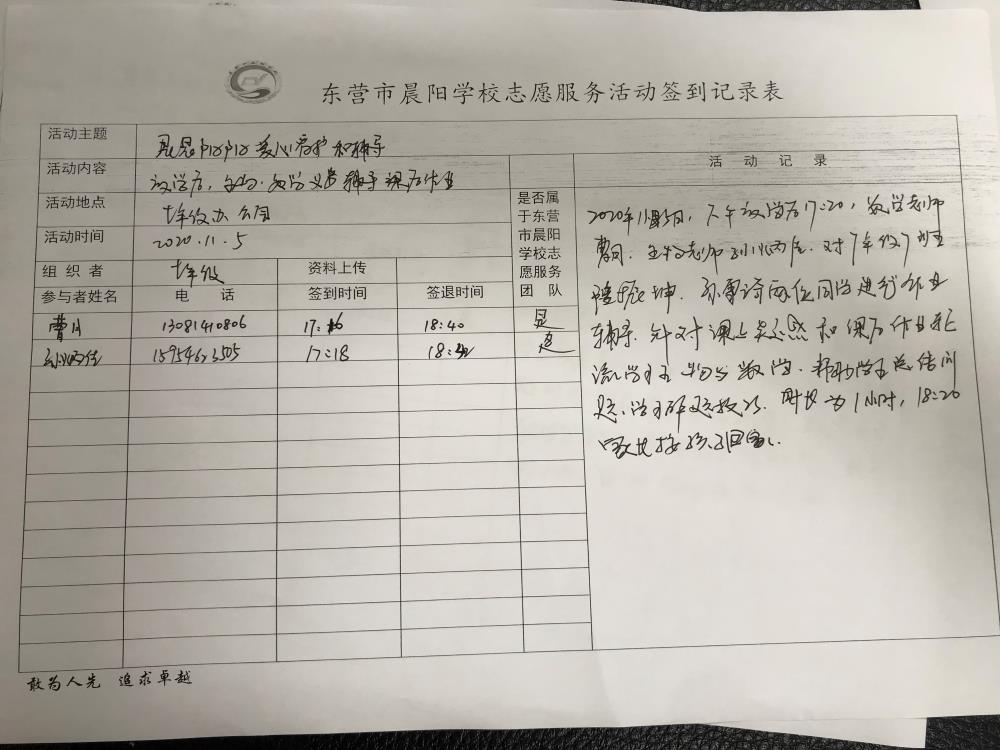 东营市晨阳学校志愿服务活动签到记录表
活动主题 爱心守护和辅导
活动内容 放学后, 生物、数学义务辅导课后作业
活动地点 七年级办公司
活动时间 2020.11.5
组织者 七年级 资料上传
参与者姓名 电话 签到时间 签退时间
是否属
于东营
市晨阳
学校志
愿服务
团队
曹月 13081410806 17:16 18:40 是
15954623505 17:18 18:42 是
活动记录
2020年11月5日, 下午放学后17:20, 数学老师
曹月、生物老师 对7年级7班
坤、 两位同学进行作业
辅导. 针对课上疑惑和课后作业轮
流学习生物与数学. 帮助学生总结问
题、学习解题技巧. 时长为1小时, 18:20
家长接孩子回家.
敢为人先 追求卓越